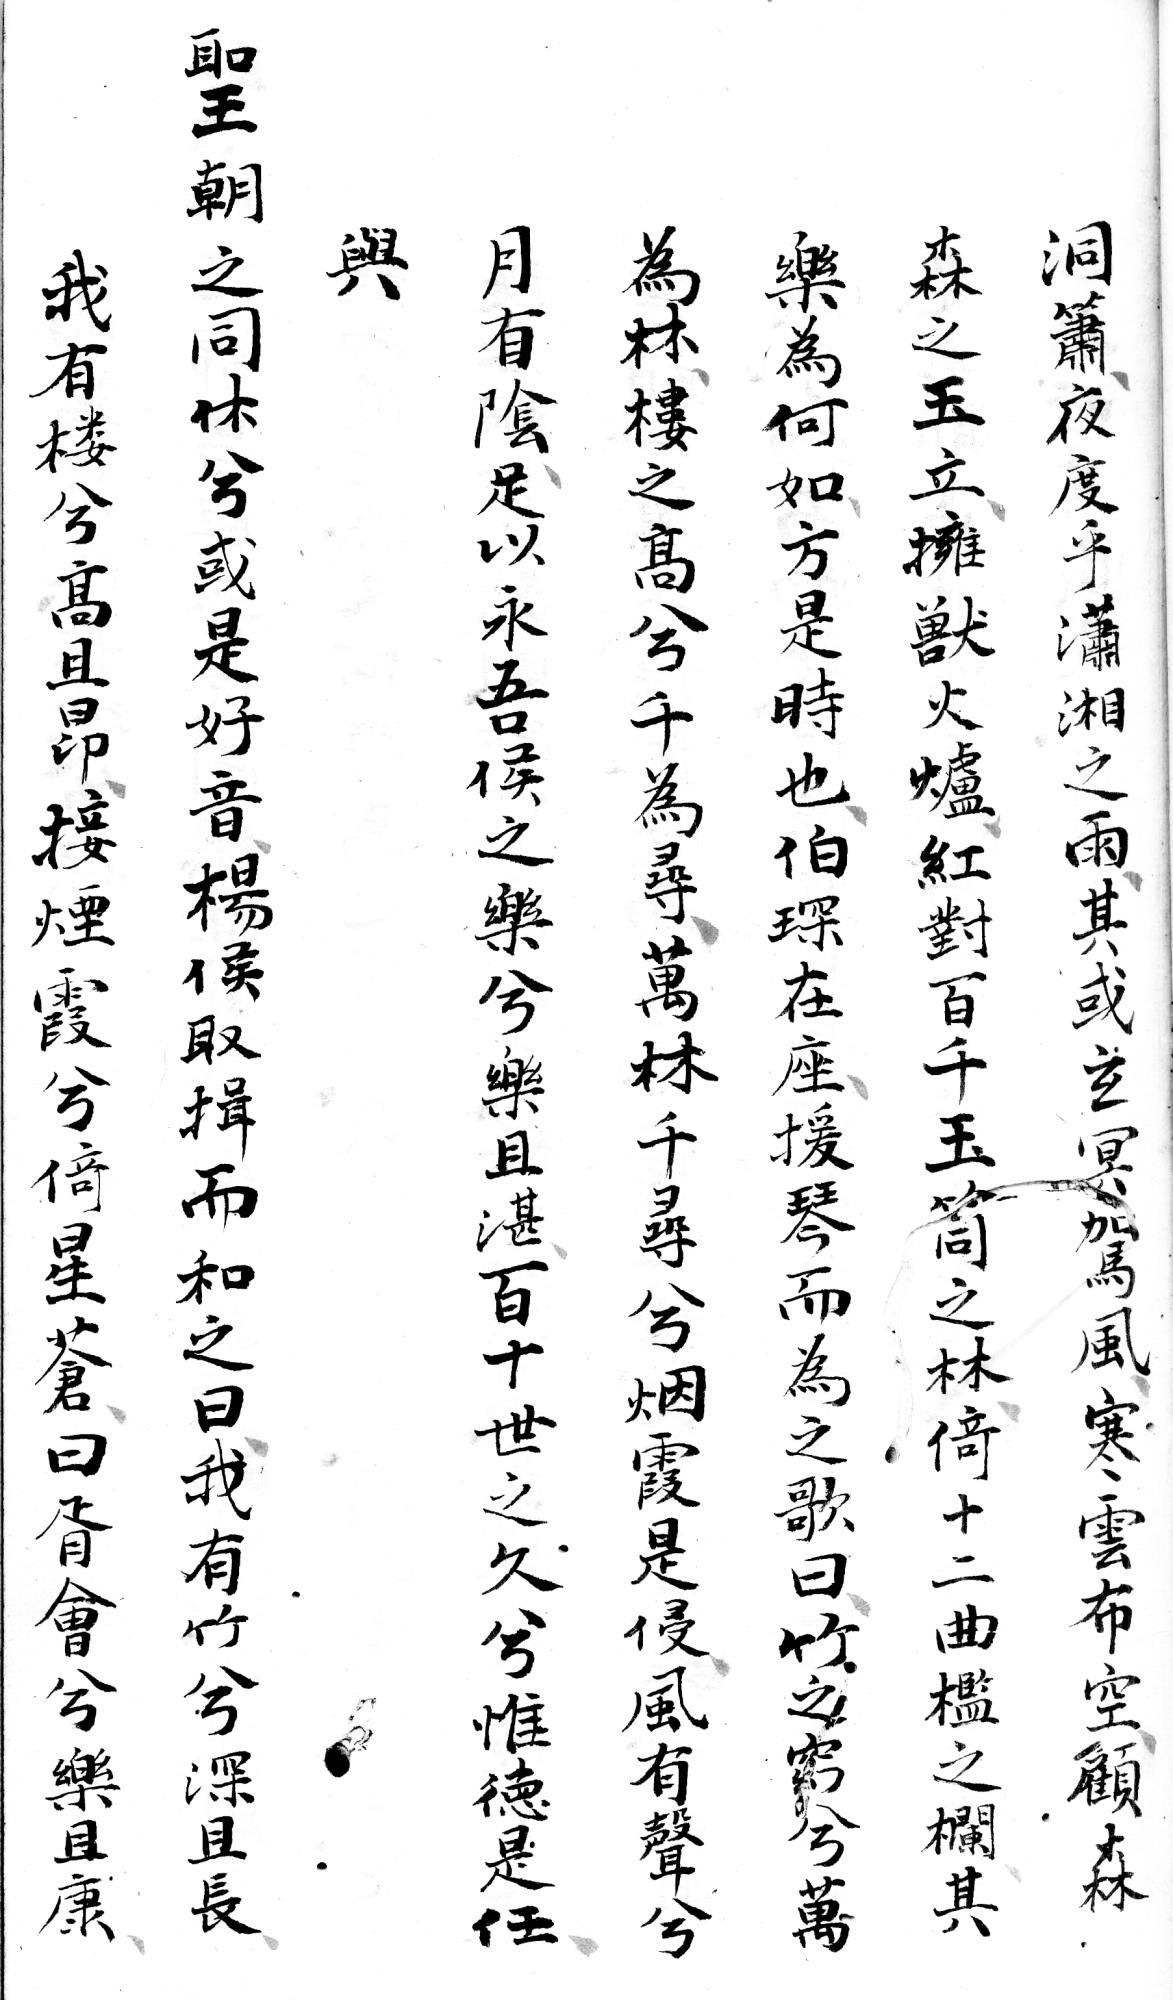 洞簫夜度乎瀟湘之雨其或玄冥駕風寒雲布空顧森
森之玉立擁獸火爐紅對百千玉筒之林倚十二曲檻之欄其
樂為何如方是時也伯琛在座援琴而為之歌曰竹之窈兮萬
為林樓之高兮千為尋萬林千尋兮烟霞是侵風有聲兮
月有陰足以永吾侯之樂兮樂且湛百十世之久兮惟德是任
與
聖朝之同休兮或是好音楊侯取揖而和之曰我有竹兮深且長
我有楼兮高且昂接煙霞兮倚星蒼曰胥會兮樂且康